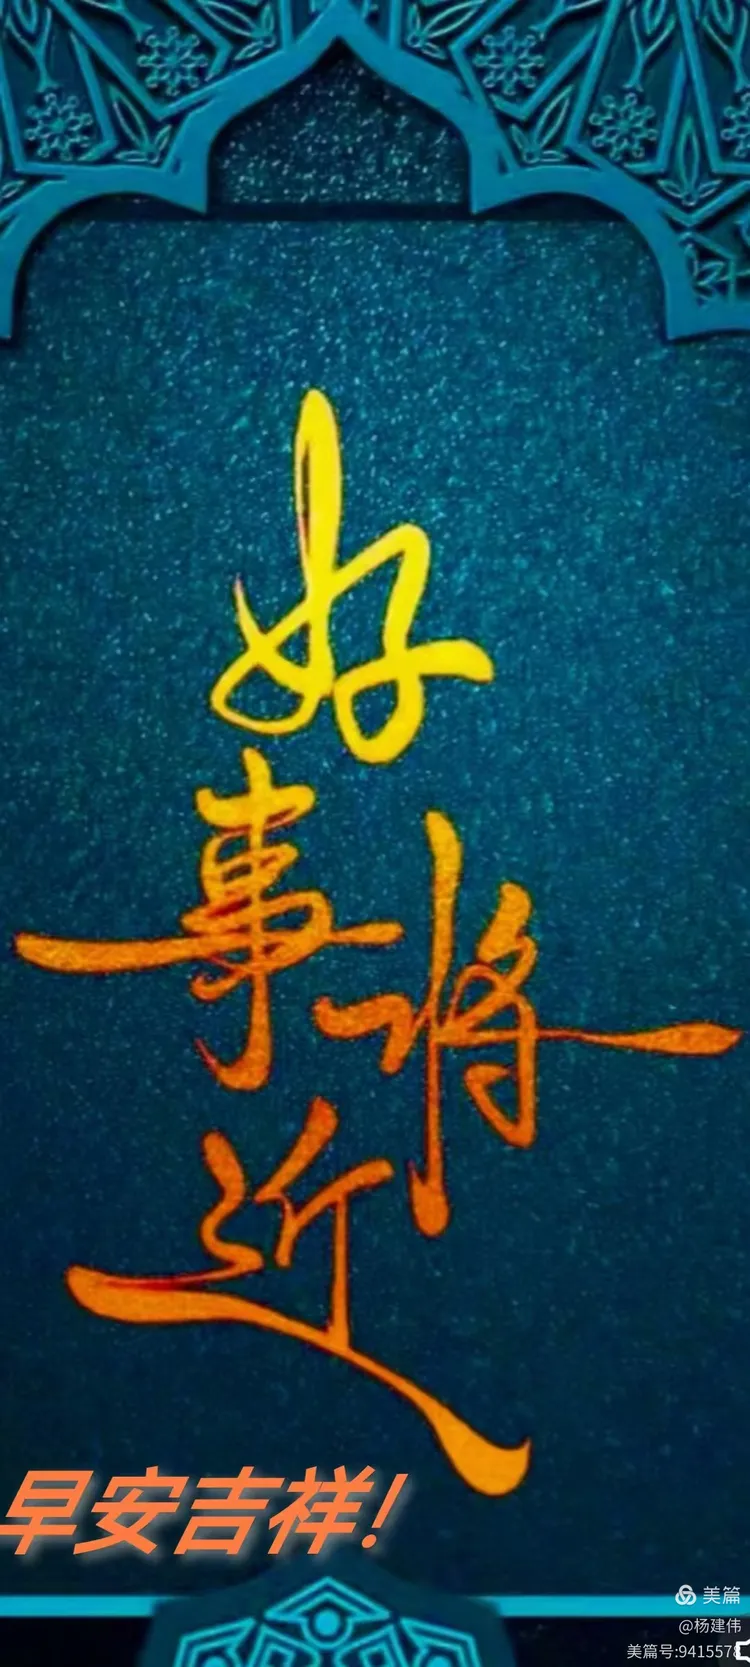 好
事将
近
早安吉祥!
美篇
@杨建伟
美篇号:9415578